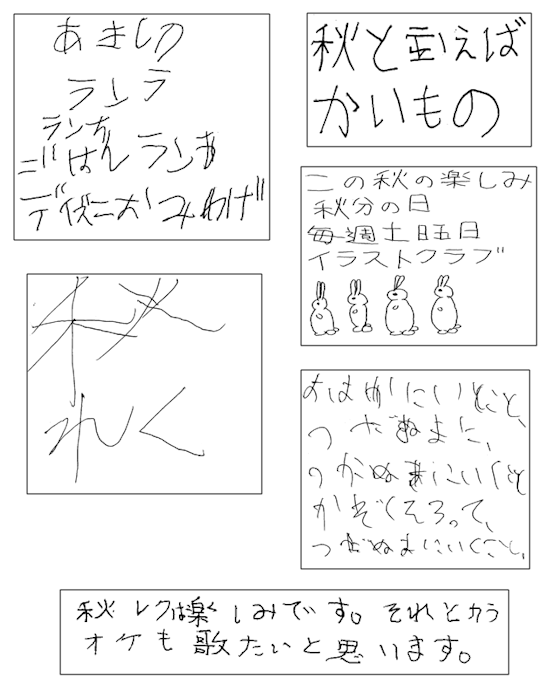 あきしの
ランラ
ランち
ごはんランち
ディズニーおみわげ
秋と言えば
かいもの
この秋の楽しみ
秋分の日
毎週土日五日
イラストクラブ
秋
れく
おはかにいくこと、
つがぬまに、
つがぬまにいくこと
かぞくそろって、
つがぬまにいくこと。
秋レクは楽しみです。それとカラ
オケも歌たいと思います。